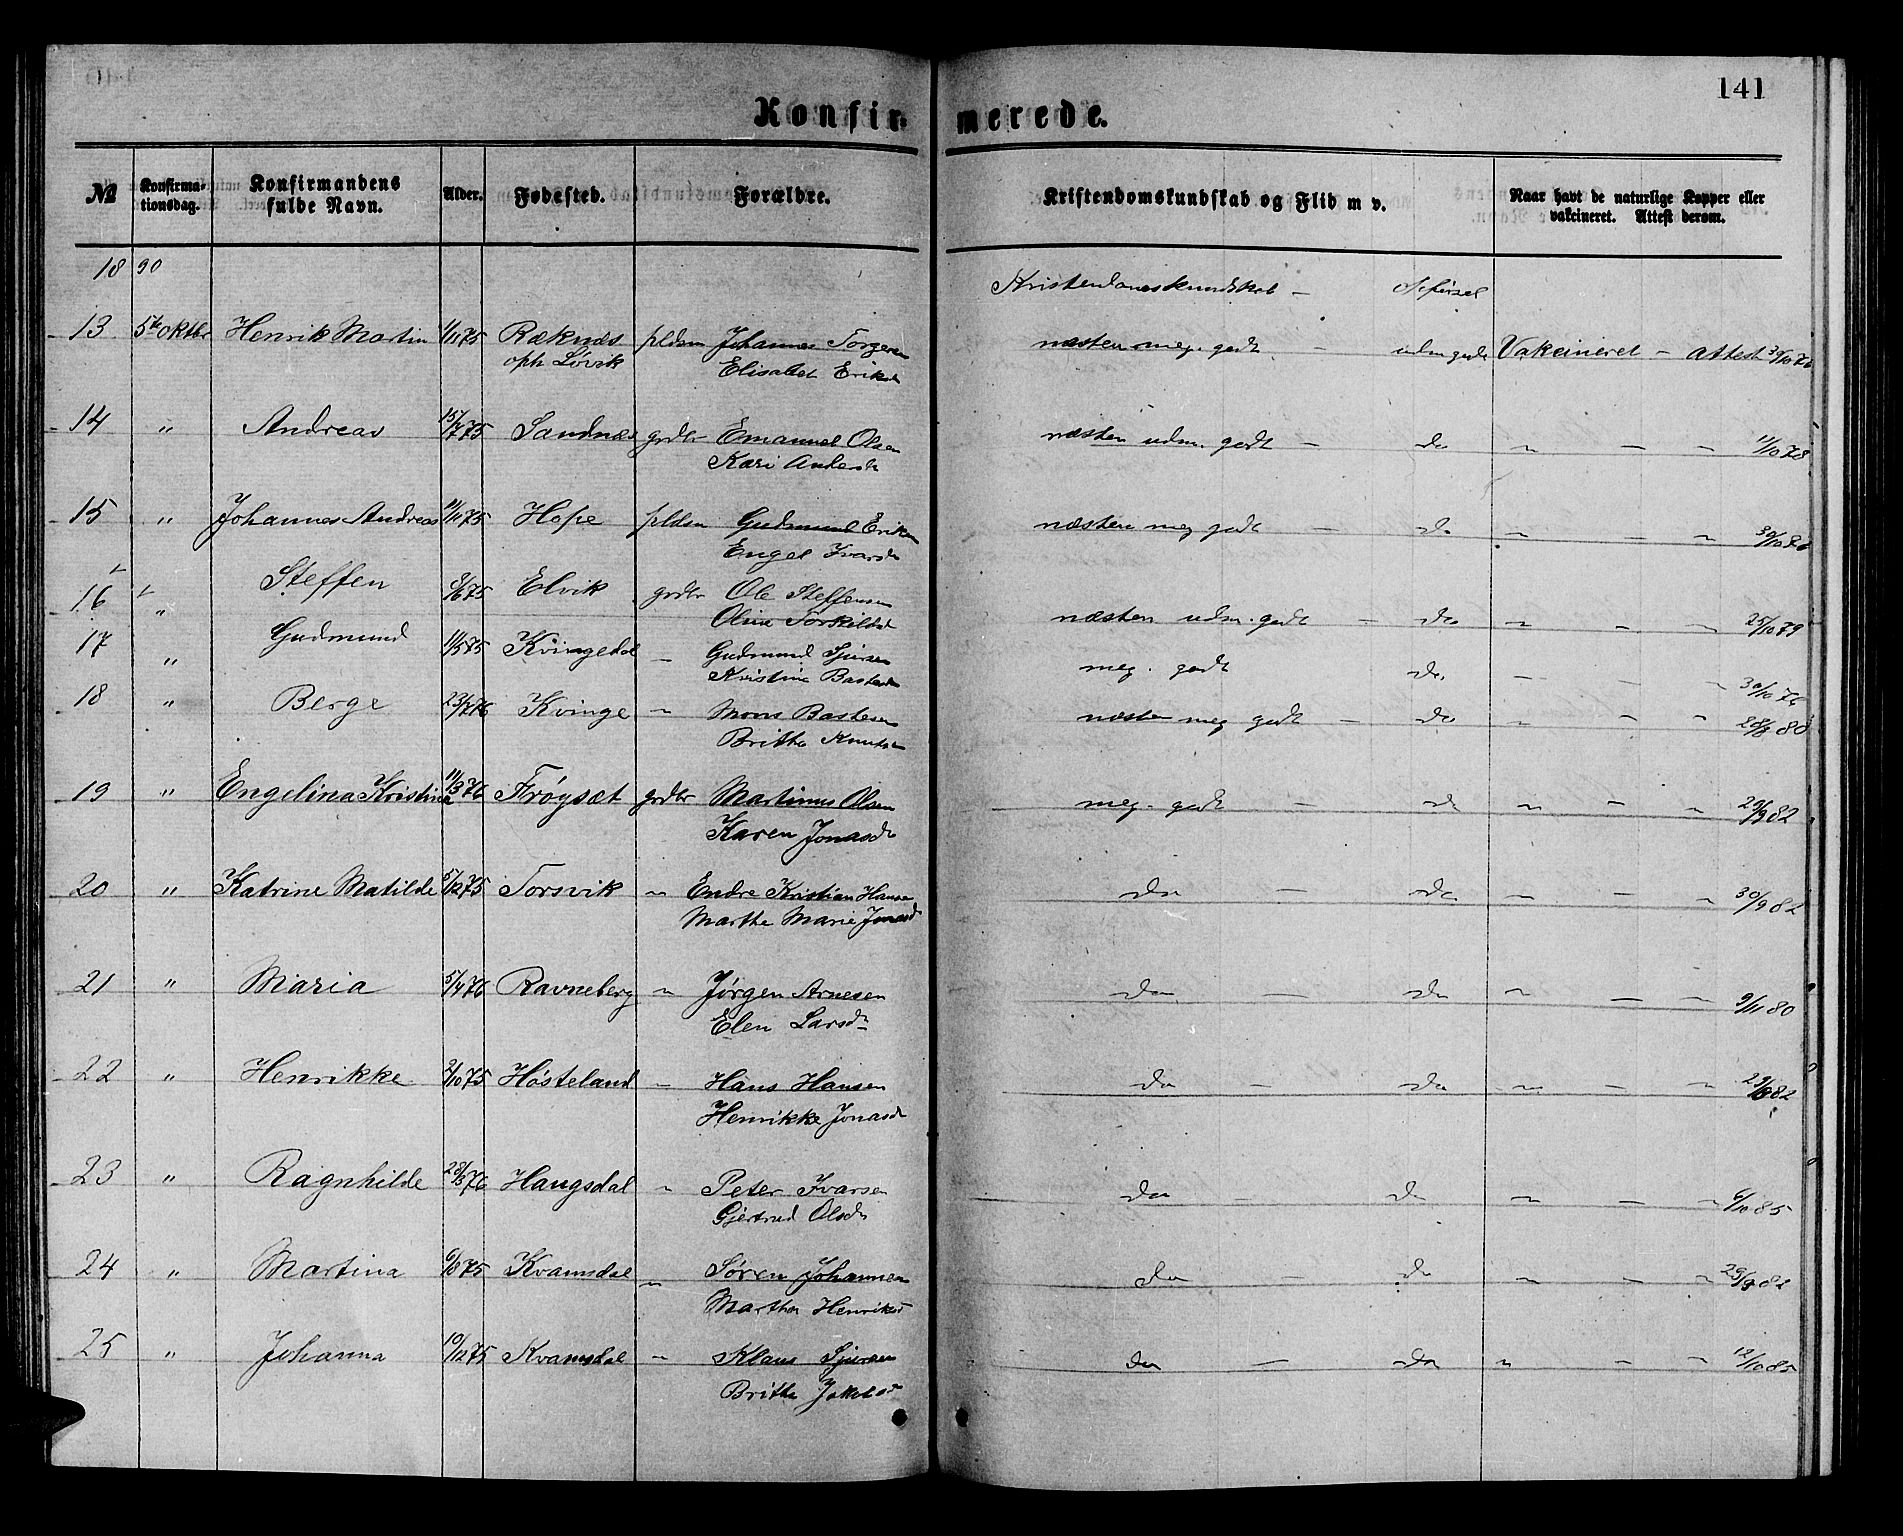 141
Konfir- merede.
№ Konfirma-tionsdag. Konfirmandens fulde Navn. Alder. Fødested. Forældre. Kristendomskundskab og Flid m v. Naar havt de naturlige Kopper eller vakcineret. Attest derom.
18 90 Kristendomskundskab - Opførsel
13 5te oktbr Henrik Martin 1/11 75 Ræknæs plds Johannes Torgersen næsten meg. godt - udm godt Vakcineret - attest 30/10 76
oph Løvik Elisabet Eriksd
14 " Andreas 15/7 75 Sandnæs grdbr Emanuel Olsen næsten udm. godt - do " - " 11/10 78
Kari Andersd
15 " Johannes Andreas 11/11 75 Hope pldsm Gudmund Eriksen næsten meg godt - do " - "
Engel Ivarsd
16 " Steffen 8/6 75 Elvik grdbr Ole Steffensen næsten udm. godt - do " - " 25/10 79
Oline Torkildsd
17 " Gudmund 11/5 75 Kvingedal - Gudmund Sjursen meg. godt do. " - " 30/10 76
Kristine Bastesd
18 " Berge 23/7 76 Kvinge " Mons Bastesen næsten meg godt - do " - " 28/8 80
Britha Knutsd
19 " Engelina Kristina 11/3 76 Frøysæt grdbr Martinus Olsen meg. godt - do " - " 29/9 82
Karen Jonasd
20 " Katrine Matilde 5/12 75 Torsvik " Endre Kristian Hansen do - do " - " 30/9 82
Marthe Marie Jonasd
21 " Maria 5/4 76 Ravneberg " Jørgen Arnesen do - do " - " 9/11 80
Elen Larsd
22 " Henrikke 2/10 75 Høsteland - Hans Hansen do - do " - "
Henrikke Jonasd
23 " Ragnhilde 28/3 76 Haugsdal " Peter Ivarsen do - do " - " 6/10 85
Gjertrud Olsd
24 " Martina 6/8 75 Kvamsdal " Søren Johannesen do - do " - " 29/9 82
Martha Henriksd
25 " Johanna 10/12 75 Kvamsdal " Klaus Sjursen do - do " - " 12/10 85
Britha Jakobsd